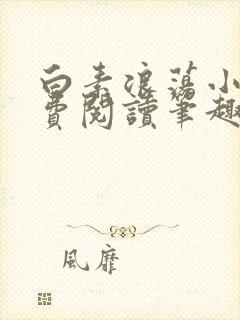 白素浪蕩小
費閱讀筆趣
風靡